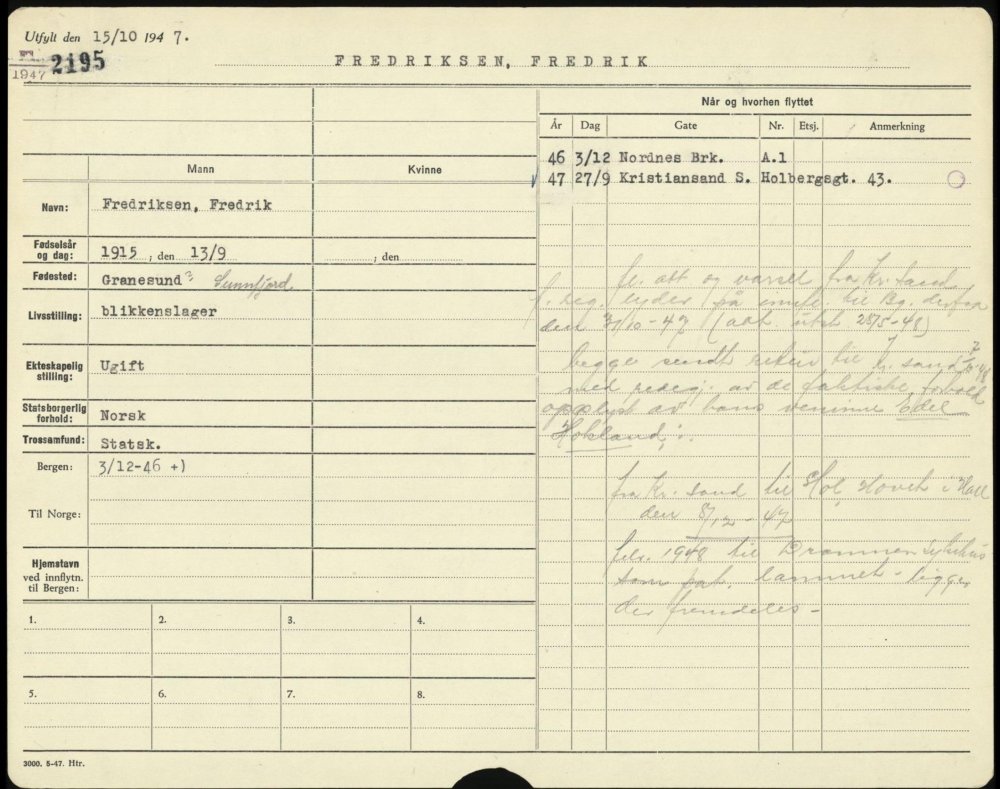 Utfylt den 15/10 1947.
Fl. 1947 2195
FREDRIKSEN, FREDRIK
Når og hvorhen flyttet
År Dag Gate Nr. Etsj. Anmerkning
46 3/12 Nordnes Brk. A.1
47 27/9 Kristiansand S. Holbergsgt. 43.
Mann Kvinne
Navn: Fredriksen, Fredrik
Fødselsår og dag: 1915, den 13/9 ; den
Fødested: Granesund ? Sunnfjord
Livsstilling: blikkenslager
Ekteskapelig stilling: Ugift
Statsborgerlig forhold: Norsk
Trossamfund: Statsk.
Bergen: 3/12-46 +)
Til Norge:
Hjemstavn
ved innflytn.
til Bergen:
1. 2. 3. 4.
5. 6. 7. 8.
fl. att og varsel fra Kr. sand
lyder på innfl. til Bg.
den
begge sendt retur til Kr. sand
med redegj. av de faktiske forhold
opplyst av hans venninne Edel
Hokland
fra Kr. sand til Hol, Hovet i Hall
den 8/12 - 47
febr. 1948 til Drammen sykehus
som pat. lammet - ligger
der fremdeles -
3000. 5-47. Htr.